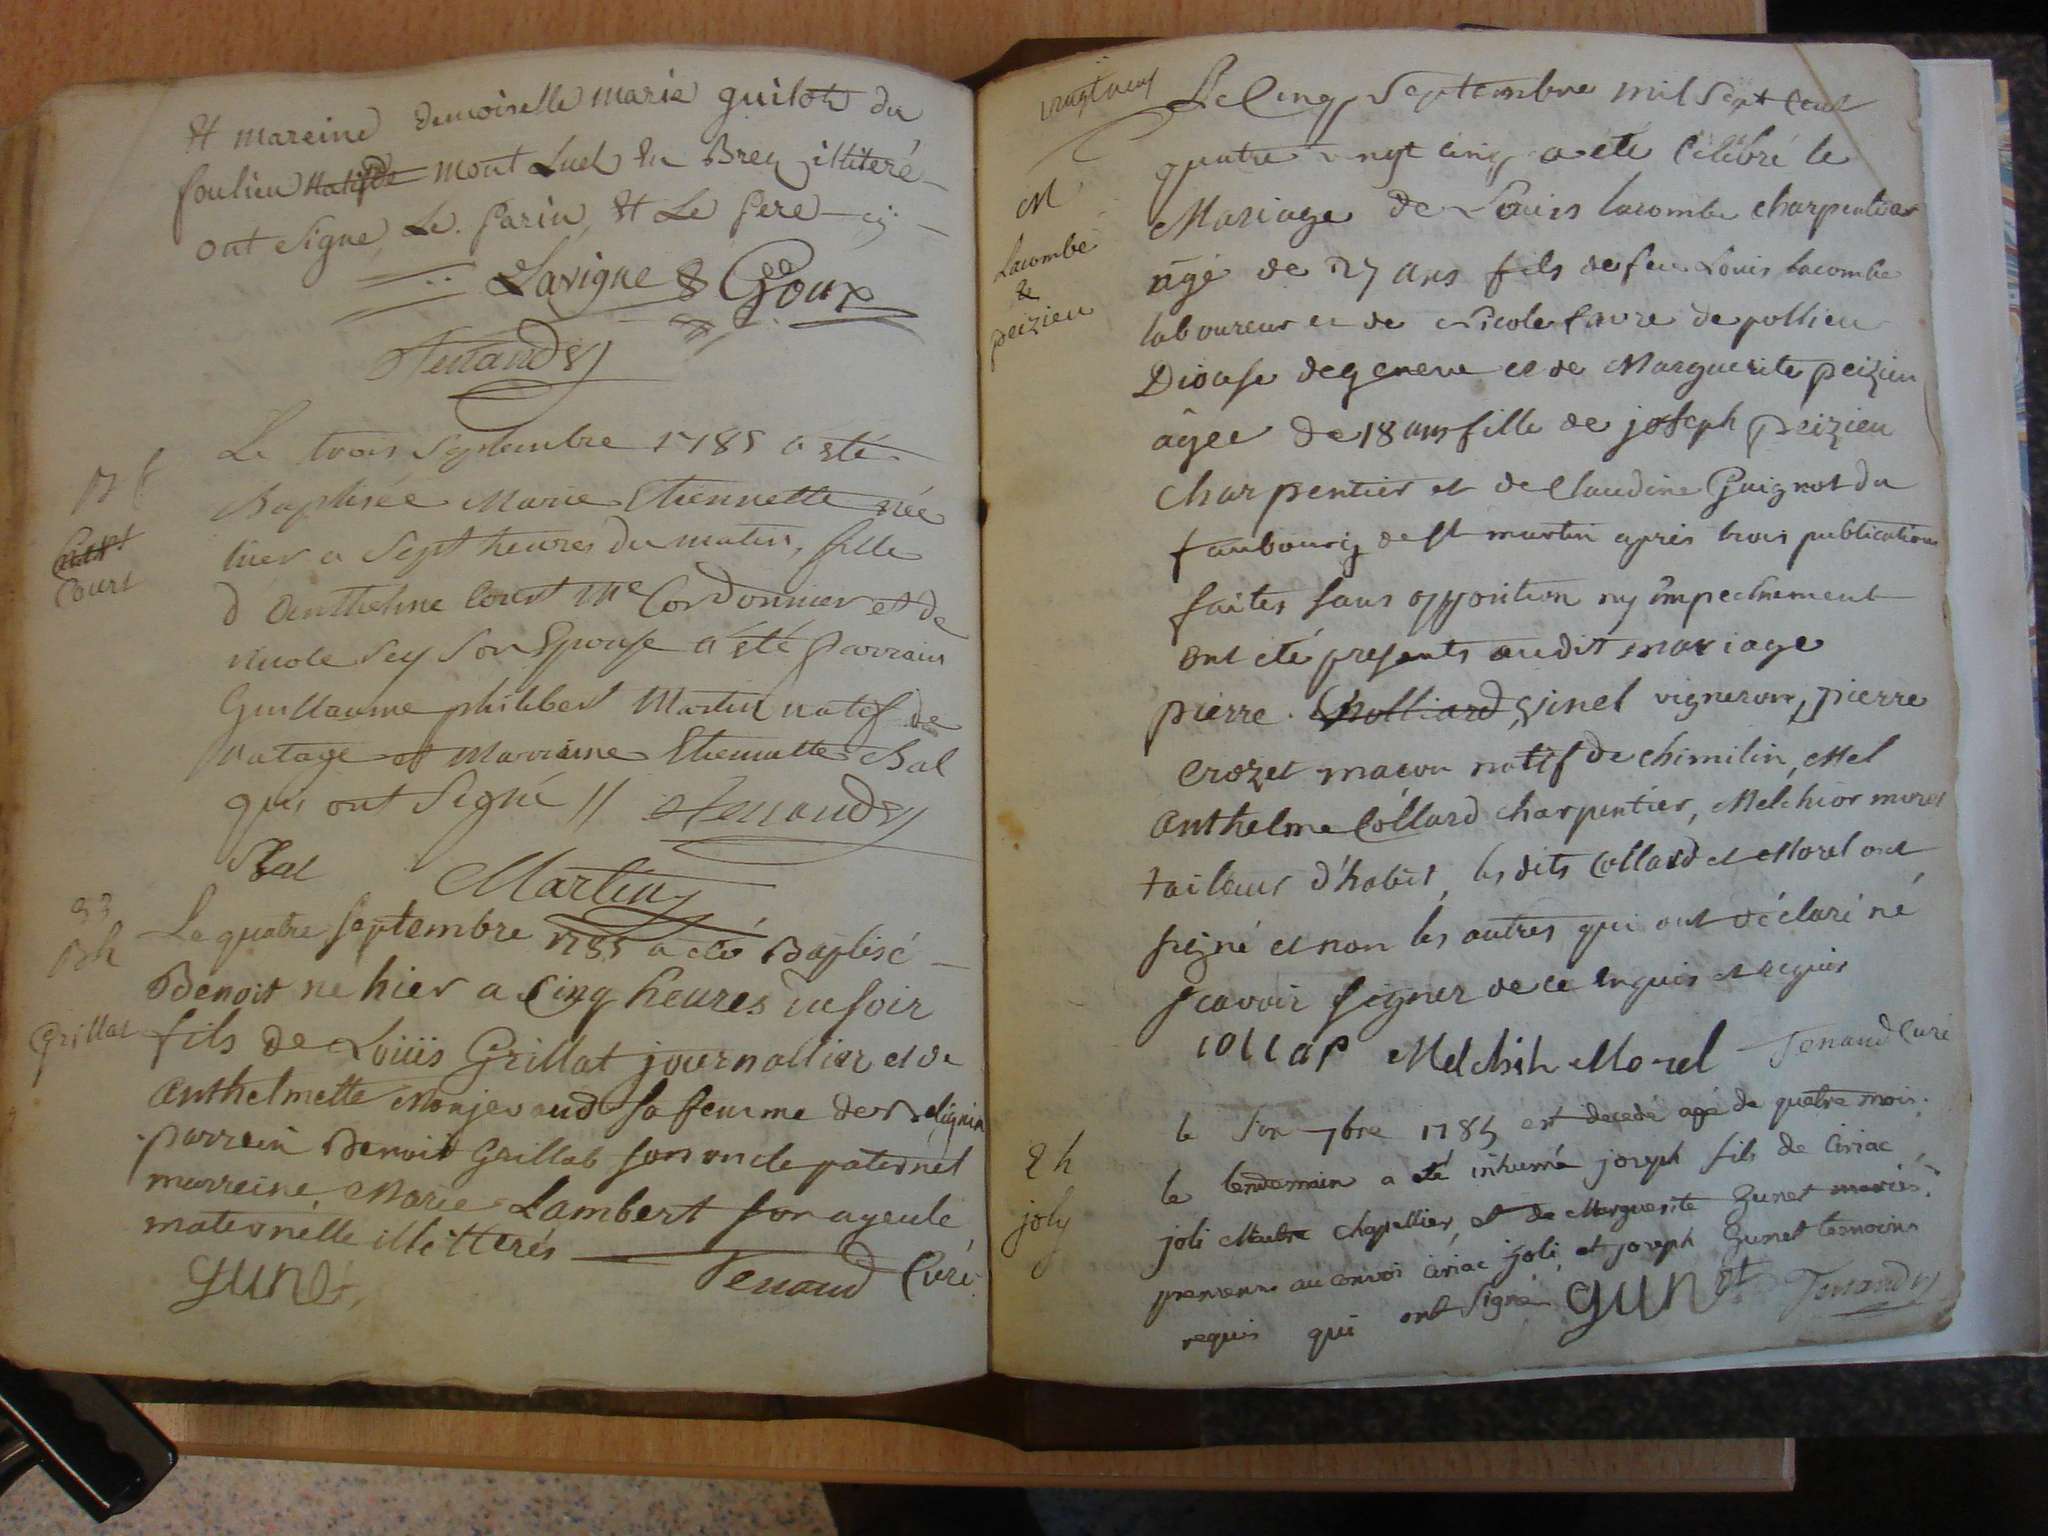 & mareine demoiselle marie guilot du
soulieu mont Luel en Brey illiteré
ont signe Le Parin & Le pere
Lavigne & Goux
Tenand
B f
Court
Le trois Septembre 1785 a eté
Baptisée Marie Etiennette née
hier a Sept heures du matin, fille
d'Anthelme Court Me Cordonnier et de
nicole Sey Son Epouse a été Parrain
Guillaume philibert Martin natif de
et Marraine Etiennette Bal
qui ont Signé // Tenand
Bal Martin
93
B h
Grillat
Le quatre septembre 1785 a eté Baptisé
Benoit ne hier a Cinq heures du soir
fils de Loüis Grillat journallier et de
Anthelmette Monjeraud sa femme de
parrein Benoit Grillat son oncle paternel
marreine Marie Lambert son ayeule
maternelle illitterés
Tenand Curé
GUNet
vingt neuf
M
Lacombe
&
peizieu
Le Cinq Septembre mil Sept Cent
quatre vingt cinq a été Célébré le
Mariage de Louis Lacombe charpentier
agé de 27 ans fils de feu Louis Lacombe
laboureur et de Nicole favre de pollieu
Diouse de geneve et de Marguerite peizieu
âgée de 18 ans fille de joseph peizieu
charpentier et de Claudine Guignot du
faubourg de st martin après trois publications
faites sans opposition ny impechement
ont été presents audit mariage
pierre Cholliard Ginel vigneron, pierre
Crozet maçon natif de chimilin, Mel
Anthelme Collard charpentier, Melchior morel
tailleur d'habit, les dits Collard et Morel ont
signé et non les autres qui ont déclaré né
scavoir signer de ce enquis et requis
Melchih Morel Tenand Curé
2 h
joly
le 7bre 1785 est decedé agé de quatre mois.
le lendemain a eté inhumé joseph fils de Ciriac
joli Maitre Chapellier, et de Marguerite Gunet mariés.
presens au convoi Ciriac joli, et joseph Gunet temoins
requis qui ont Signé GUNet Tenand